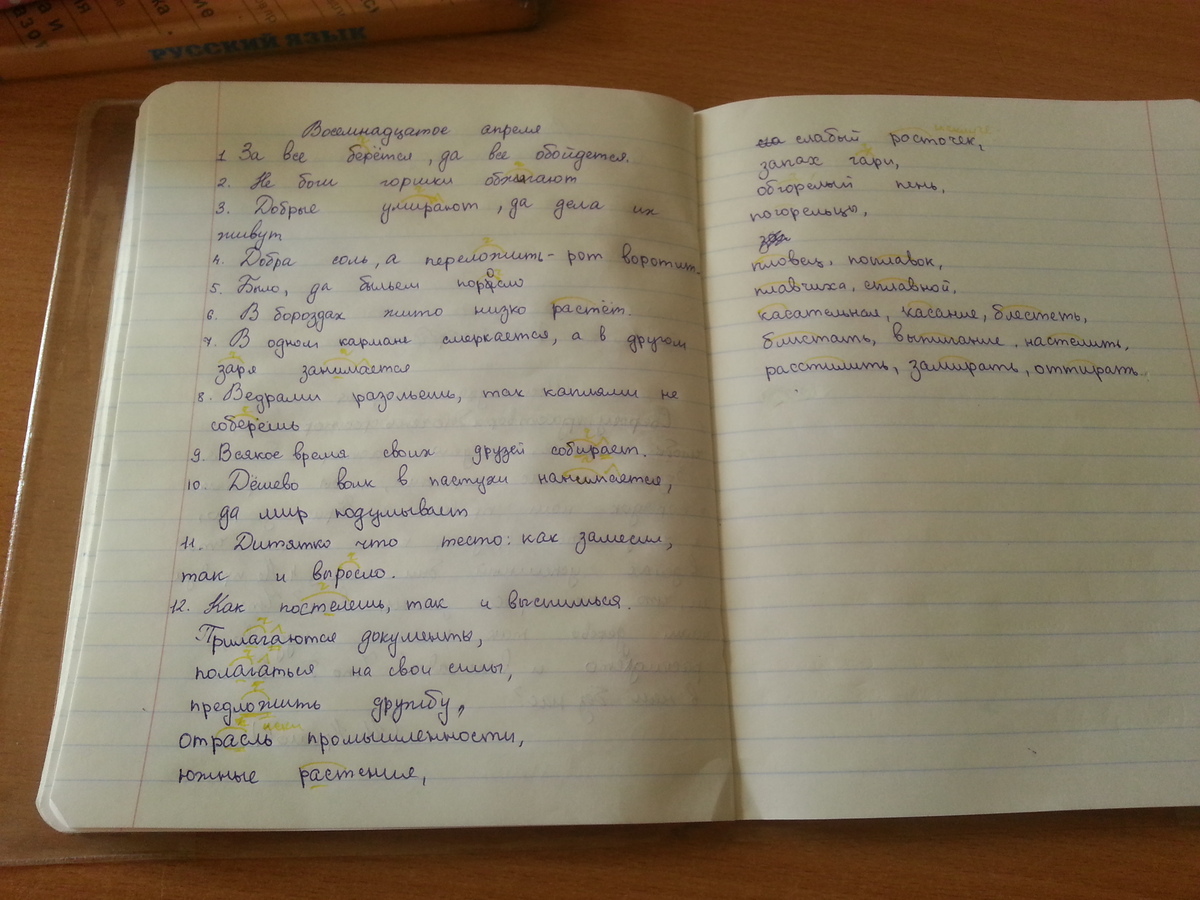 РУССКИЙ ЯЗЫК
Восемнадцатое апреля
1 За все берётся, да все обойдется.
2. Не боги горшки обжигают
3. Добрые умирают, да дела их
живут
4. Добра соль, а переложить - рот воротит.
5. Было, да быльем поросло
6. В бороздах жито низко растёт.
7. В одном кармане смеркается, а в другом
заря занимается
8. Ведрами разольешь, так каплями не
соберёшь
9. Всякое время своих друзей собирает.
10. Дёшево волк в пастухи нанимается,
да мир подумывает
11. Дитятко что тесто: как замесил,
так и выросло.
12. Как постелешь, так и выспишься.
Прилагаются документы,
полагаться на свои силы,
предложить дружбу,
отрасль промышленности,
южные растения,
слабый росточек,
запах гари,
обгорелый пень,
погорельцы,
пловец, поплавок,
плавчиха, сплавной,
касательная, касание, блестеть,
блистать, выжигание, настелить,
расстилить, замирать, оттирать.